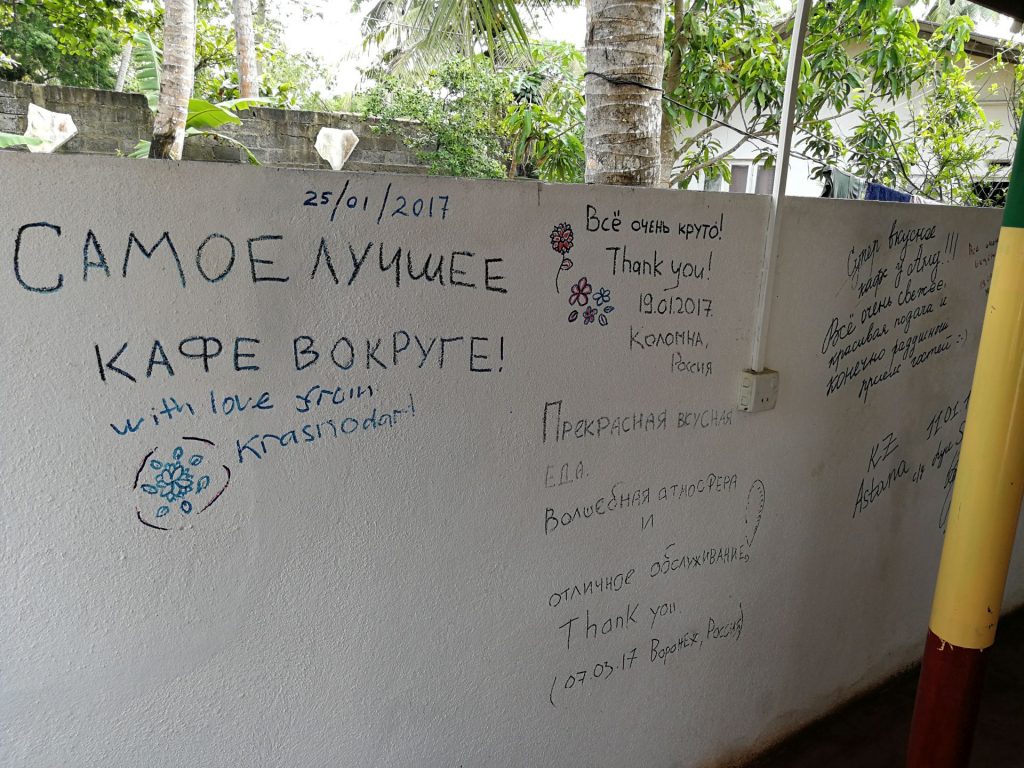 25/01/2017
САМОЕ ЛУЧШЕЕ
КАФЕ ВОКРУГЕ!
with love from
Krasnodar!
Всё очень круто!
Thank you!
19.01.2017.
Коломна,
Россия
Прекрасная вкусная
еда.
Волшебная атмосфера
и
отличное обслуживание,
Thank you
(07.03.17 Воронеж, Россия)
Супер вкусное
кафе у Ащ!!!
Всё очень свежее,
красивая подача и
конечно радушный
прием гостей :-)
KZ 11.01.1
Astana